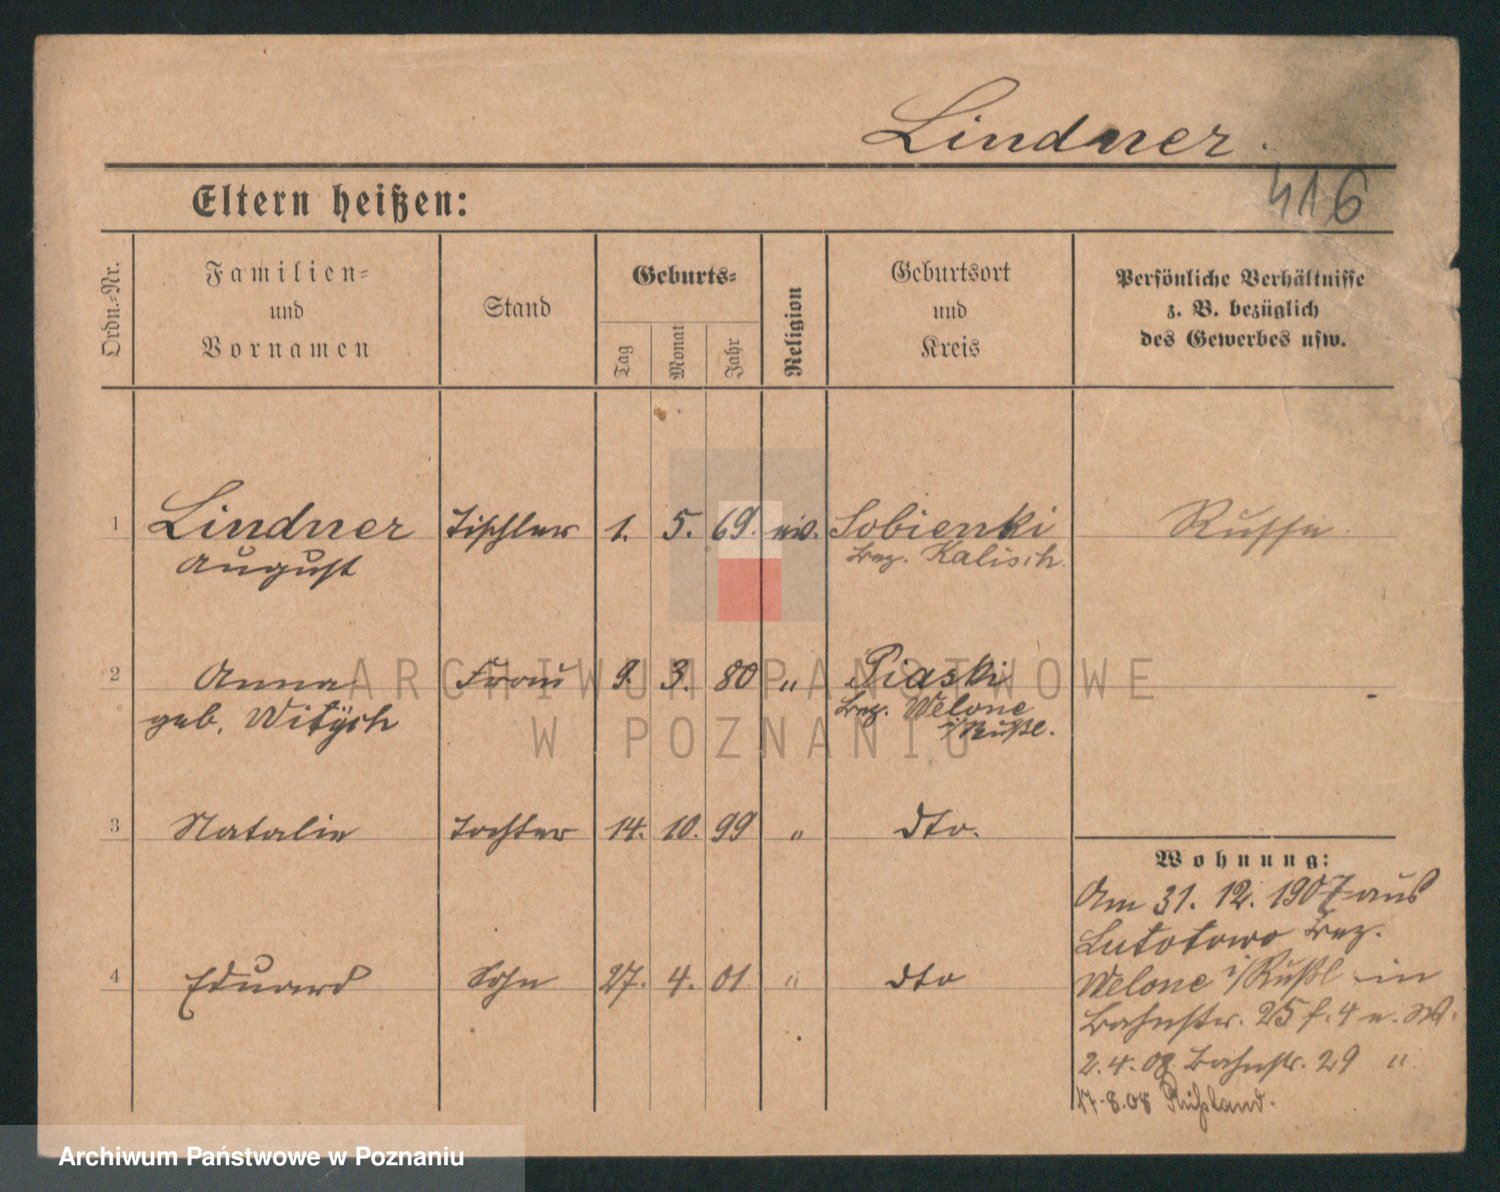 Lindner.
416
Eltern heißen:
Ordn.-Nr.
Familien-
und
Vornamen
Stand
Geburts-
Tag
Monat
Jahr
Religion
Geburtsort
und
Kreis
Persönliche Verhältnisse
z. B. bezüglich
des Gewerbes usw.
1 Lindner Tischler 1. 5. 69. ev. Sobienki Russe
August Bez. Kalisch.
2 Anna Frau 9. 3. 80 " Piaski
geb. Witÿch Bez. Welone
i/Rußl.
3 Natalie Tochter 14. 10. 99 " dto.
4 Eduard Sohn 27. 4. 01 " dto
Wohnung:
Am 31. 12. 1907 aus
Lututowo Bez.
Welone i/Rußl in
Bahnstr. 25 f. 4 n. W.
2.4.08 Bahnstr. 29 "
17.8.08 Rußland.
ARCHIWUM PAŃSTWOWE
W POZNANIU
Archiwum Państwowe w Poznaniu